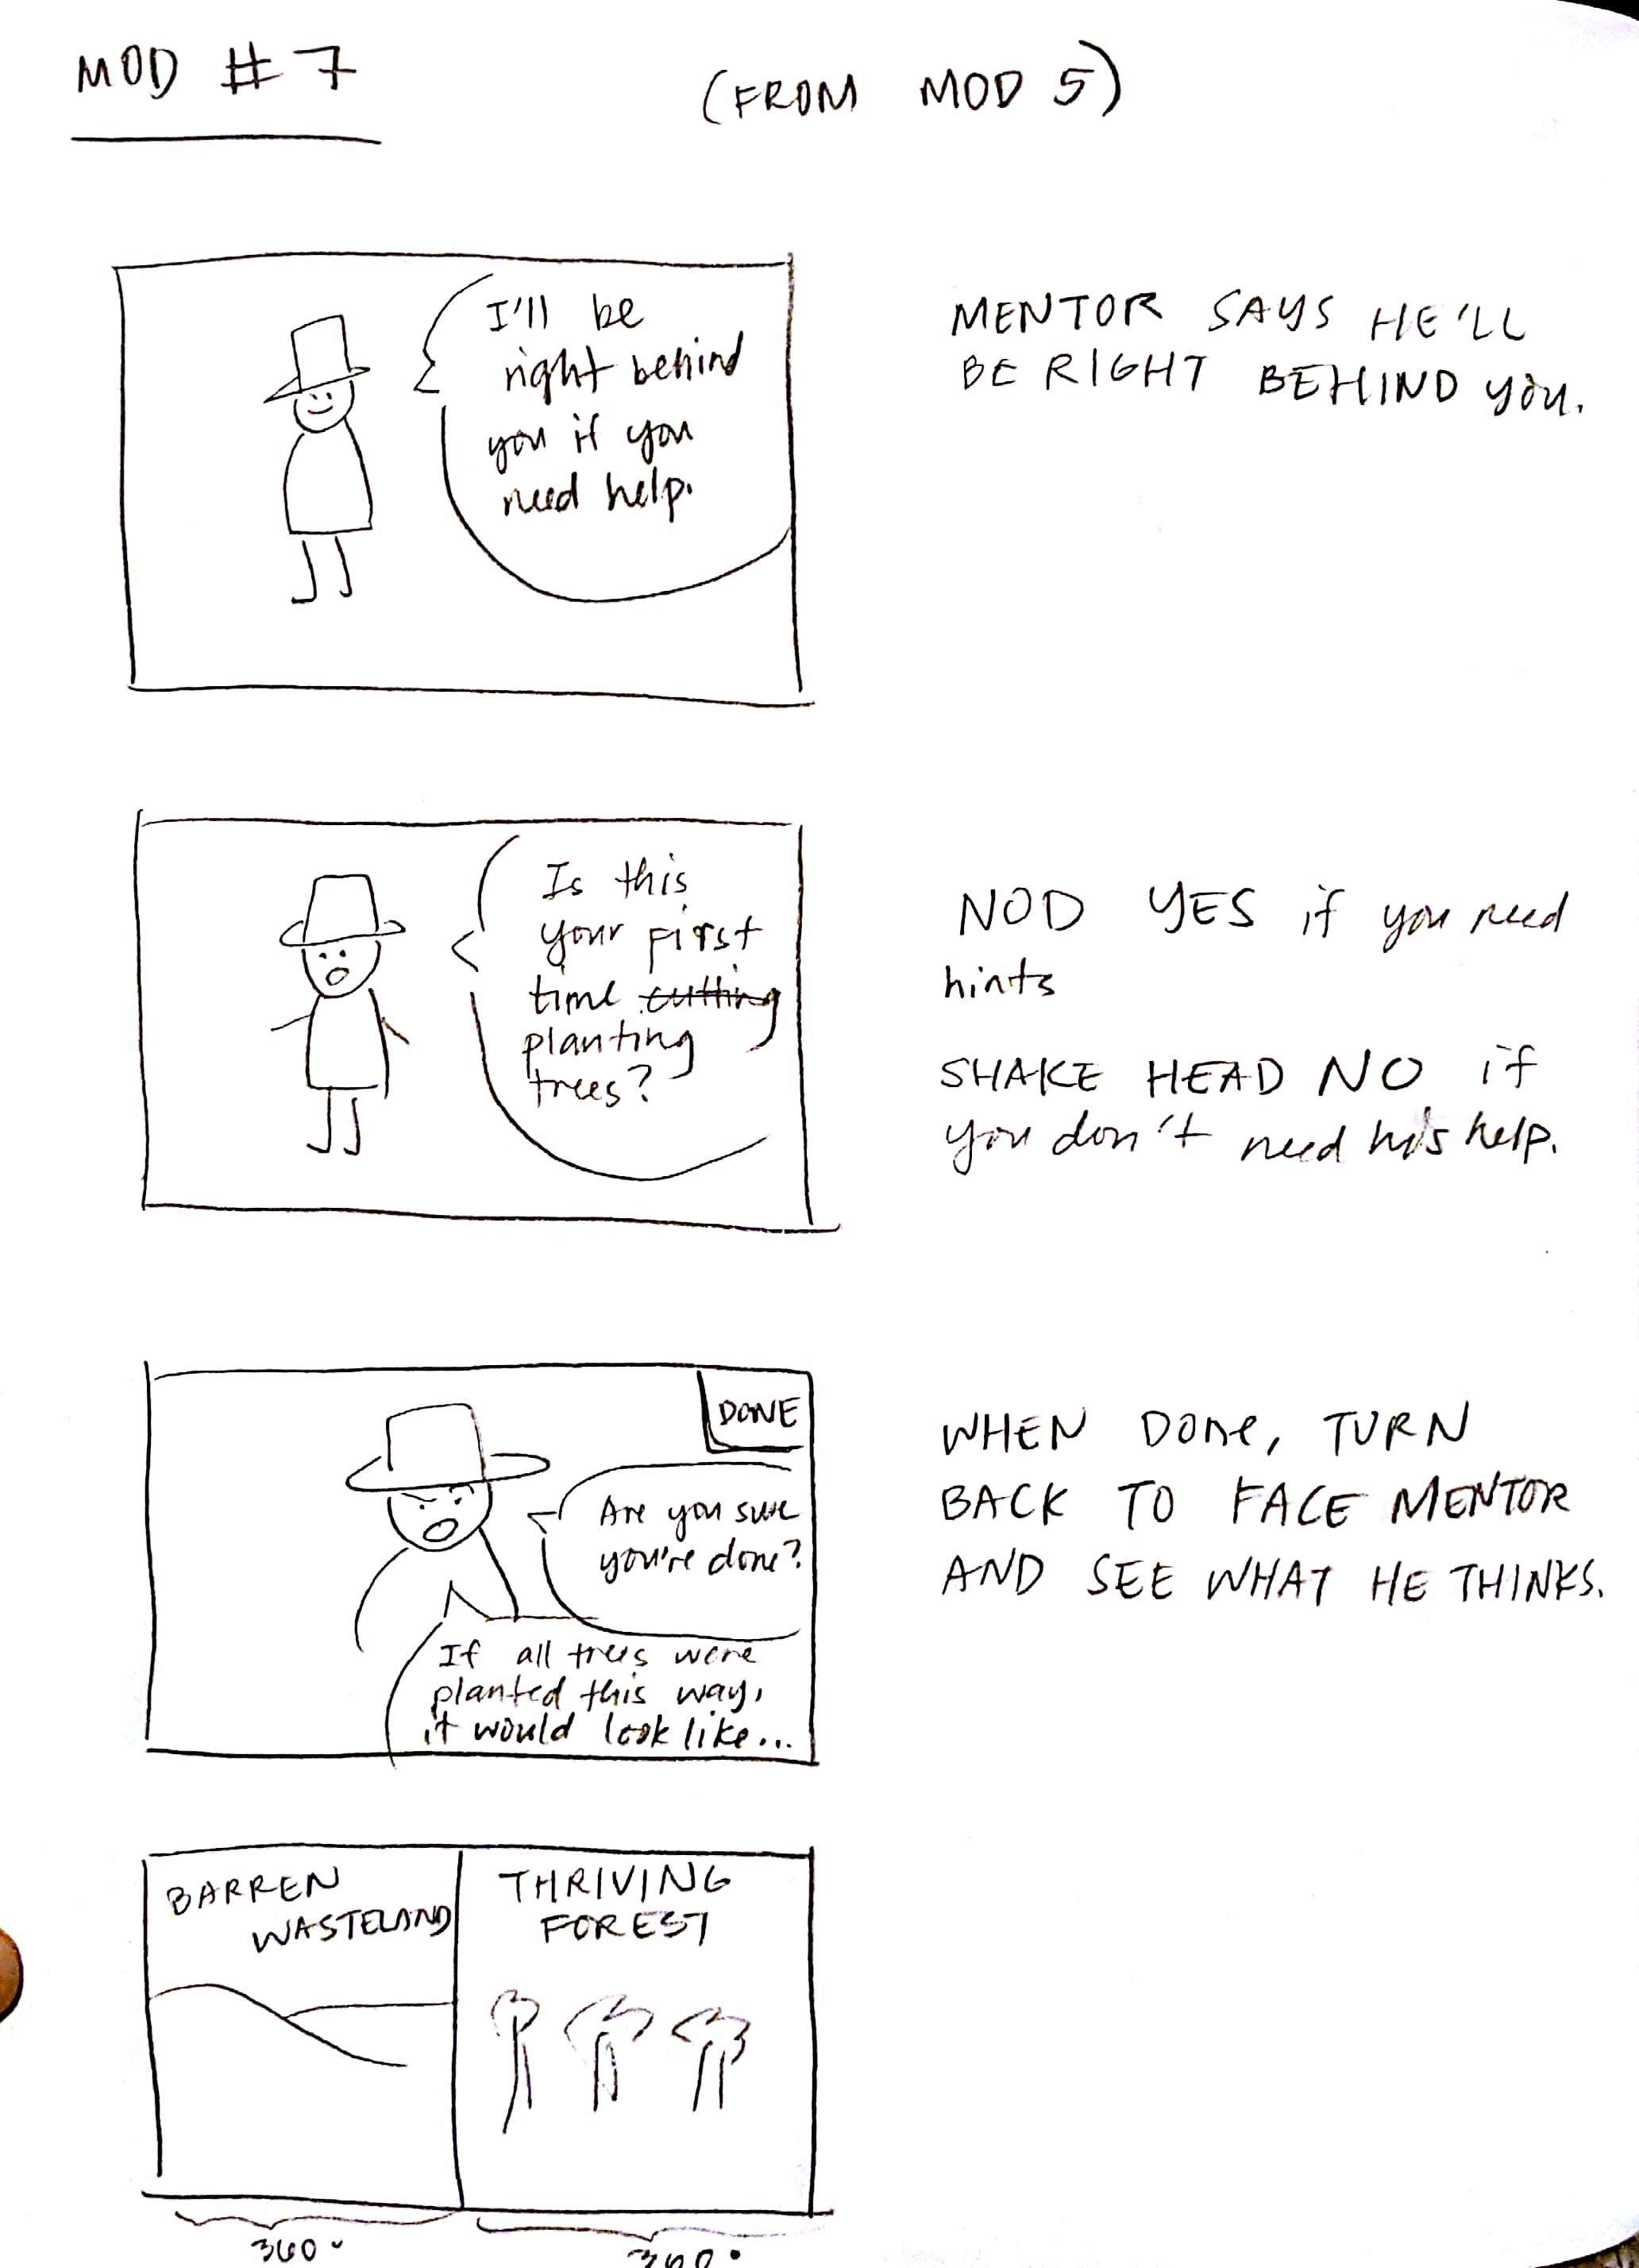 MOD #7
(FROM MOD 5)
I'll be
right behind
you if you
need help.
MENTOR SAYS HE'LL
BE RIGHT BEHIND YOU.
Is this
your first
time cutting
planting
trees?
NOD YES if you need
hints
SHAKE HEAD NO if
you don't need his help.
DONE
Are you sure
you're done?
If all trees were
planted this way,
it would look like...
WHEN DONE, TURN
BACK TO FACE MENTOR
AND SEE WHAT HE THINKS.
BARREN
WASTELAND
THRIVING
FOREST
360°
360°